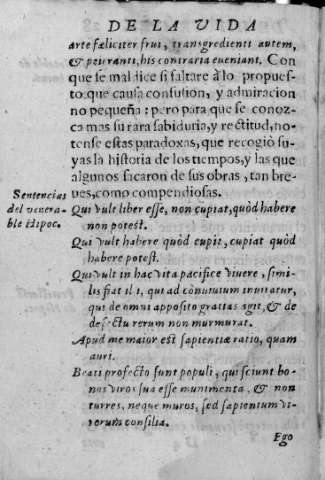 DE LA VIDA
arte fæliciter frui, transgredienti autem,
& peiuranti, his contraria eueniant. Con
que se maldice si faltare à lo propues-
to: que causa confusion, y admiracion
no pequeña: pero para que se conoz-
ca mas su rara sabiduria, y rectitud, no-
tense estas paradoxas, que recogió su-
yas la historia de los tiempos, y las que
algunos sacaron de sus obras, tan bre-
ues, como compendiosas.
Sentencias
del venera-
ble Hipoc.
Qui vult liber esse, non cupiat, quòd habere
non potest.
Qui vult habere quòd cupit, cupiat quòd
habere potest.
Qui vult in hac vita pacifice viuere, simi-
lis fiat illi, qui ad conuiuium inuitatur,
qui de omni apposito gratias agit, & de
defectu rerum non murmurat.
Apud me maior est sapientiæ ratio, quam
auri.
Beati profecto sunt populi, qui sciunt bo-
nos viros sua esse munimenta, & non
turres, neque muros, sed sapientum vi-
rorum consilia.
Ego